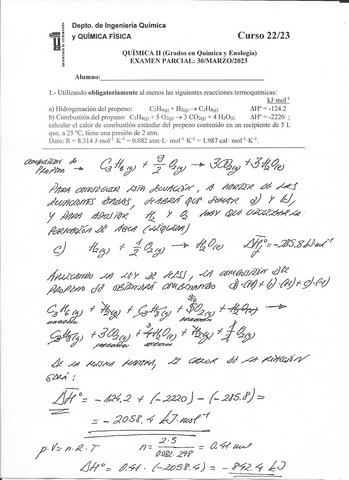 Depto. de Ingeniería Química
y QUÍMICA FÍSICA
Curso 22/23
QUÍMICA II (Grados en Química y Enología)
EXAMEN PARCIAL: 30/MARZO/2023
Alumno:
1.- Utilizando obligatoriamente al menos las siguientes reacciones termoquímicas:
kJ·mol⁻¹
a) Hidrogenación del propeno: C₃H₆(g) + H₂(g) → C₃H₈(g) ΔHº = -124.2
b) Combustión del propano: C₃H₈(g) + 5 O₂(g) → 3 CO₂(g) + 4 H₂O(l) ΔHº = -2220 ;
calcular el calor de combustión estándar del propeno contenido en un recipiente de 5 L
que, a 25 ºC, tiene una presión de 2 atm.
Dato: R = 8.314 J·mol⁻¹·K⁻¹ = 0.082 atm·L· mol⁻¹·K⁻¹ = 1.987 cal· mol⁻¹·K⁻¹.
COMBUSTIÓN de PROPENO → C₃H₆(g) + 9/2 O₂(g) → 3CO₂(g) + 3H₂O(l)
PARA CONSEGUIR ESTA ECUACIÓN, A PARTIR DE LAS
ECUACIONES DADAS, HABRÁ QUE SUMAR a) Y b),
Y PARA AJUSTAR H₂ Y O₂ HAY QUE UTILIZAR LA
FORMACIÓN DE AGUA (LÍQUIDA)
c) H₂(g) + 1/2 O₂(g) → H₂O(l) ΔHfº = -285.8 kJ·mol⁻¹
APLICANDO LA LEY DE HESS, LA COMBUSTIÓN DEL
PROPENO SE OBTENDRÁ COMBINANDO
C₃H₆(g) + H₂(g) + C₃H₈(g) + 5O₂(g) + H₂O(l) →
C₃H₈(g) + 3CO₂(g) + 4H₂O(l) + H₂(g) + 1/2 O₂(g)
DE LA MISMA MANERA, EL CALOR DE LA REACCIÓN
SERÁ:
ΔHº = -124.2 + (-2220) - (-285.8) =
= - 2058.4 kJ·mol⁻¹
p.V = n.R.T n = 2·5 / 0.082·298 = 0.41 mol
ΔHº = 0.41·(-2058.4) = -842.4 kJ